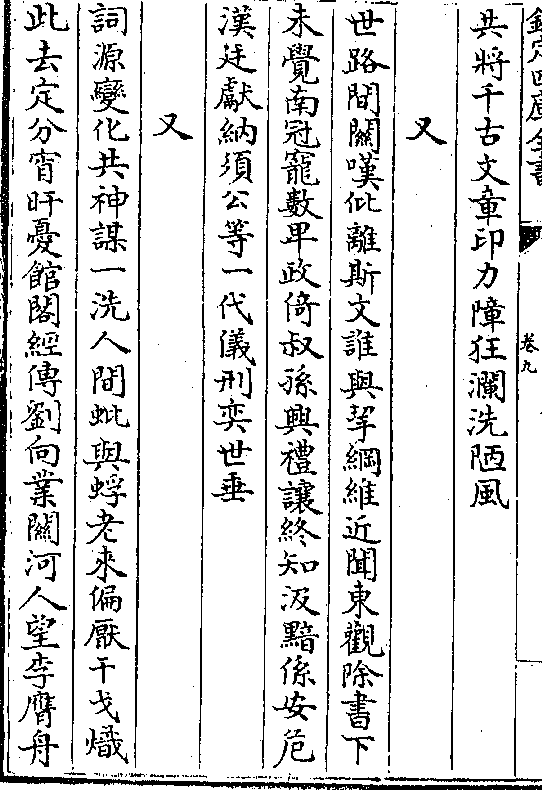 欽定四庫全書
卷九
共將千古文章印力障狂瀾洗陋風
又
世路間關嘆仳離斯文誰與挈綱維近聞東觀除書下
未覺南冠寵數卑政倚叔孫興禮讓終知汲黯係安危
漢廷獻納須公等一代儀刑奕世垂
又
詞源變化共神謀一洗人間蚍與蜉老來偏厭干戈熾
此去定分宵旰憂館閣經傳劉向業關河人望李膺舟